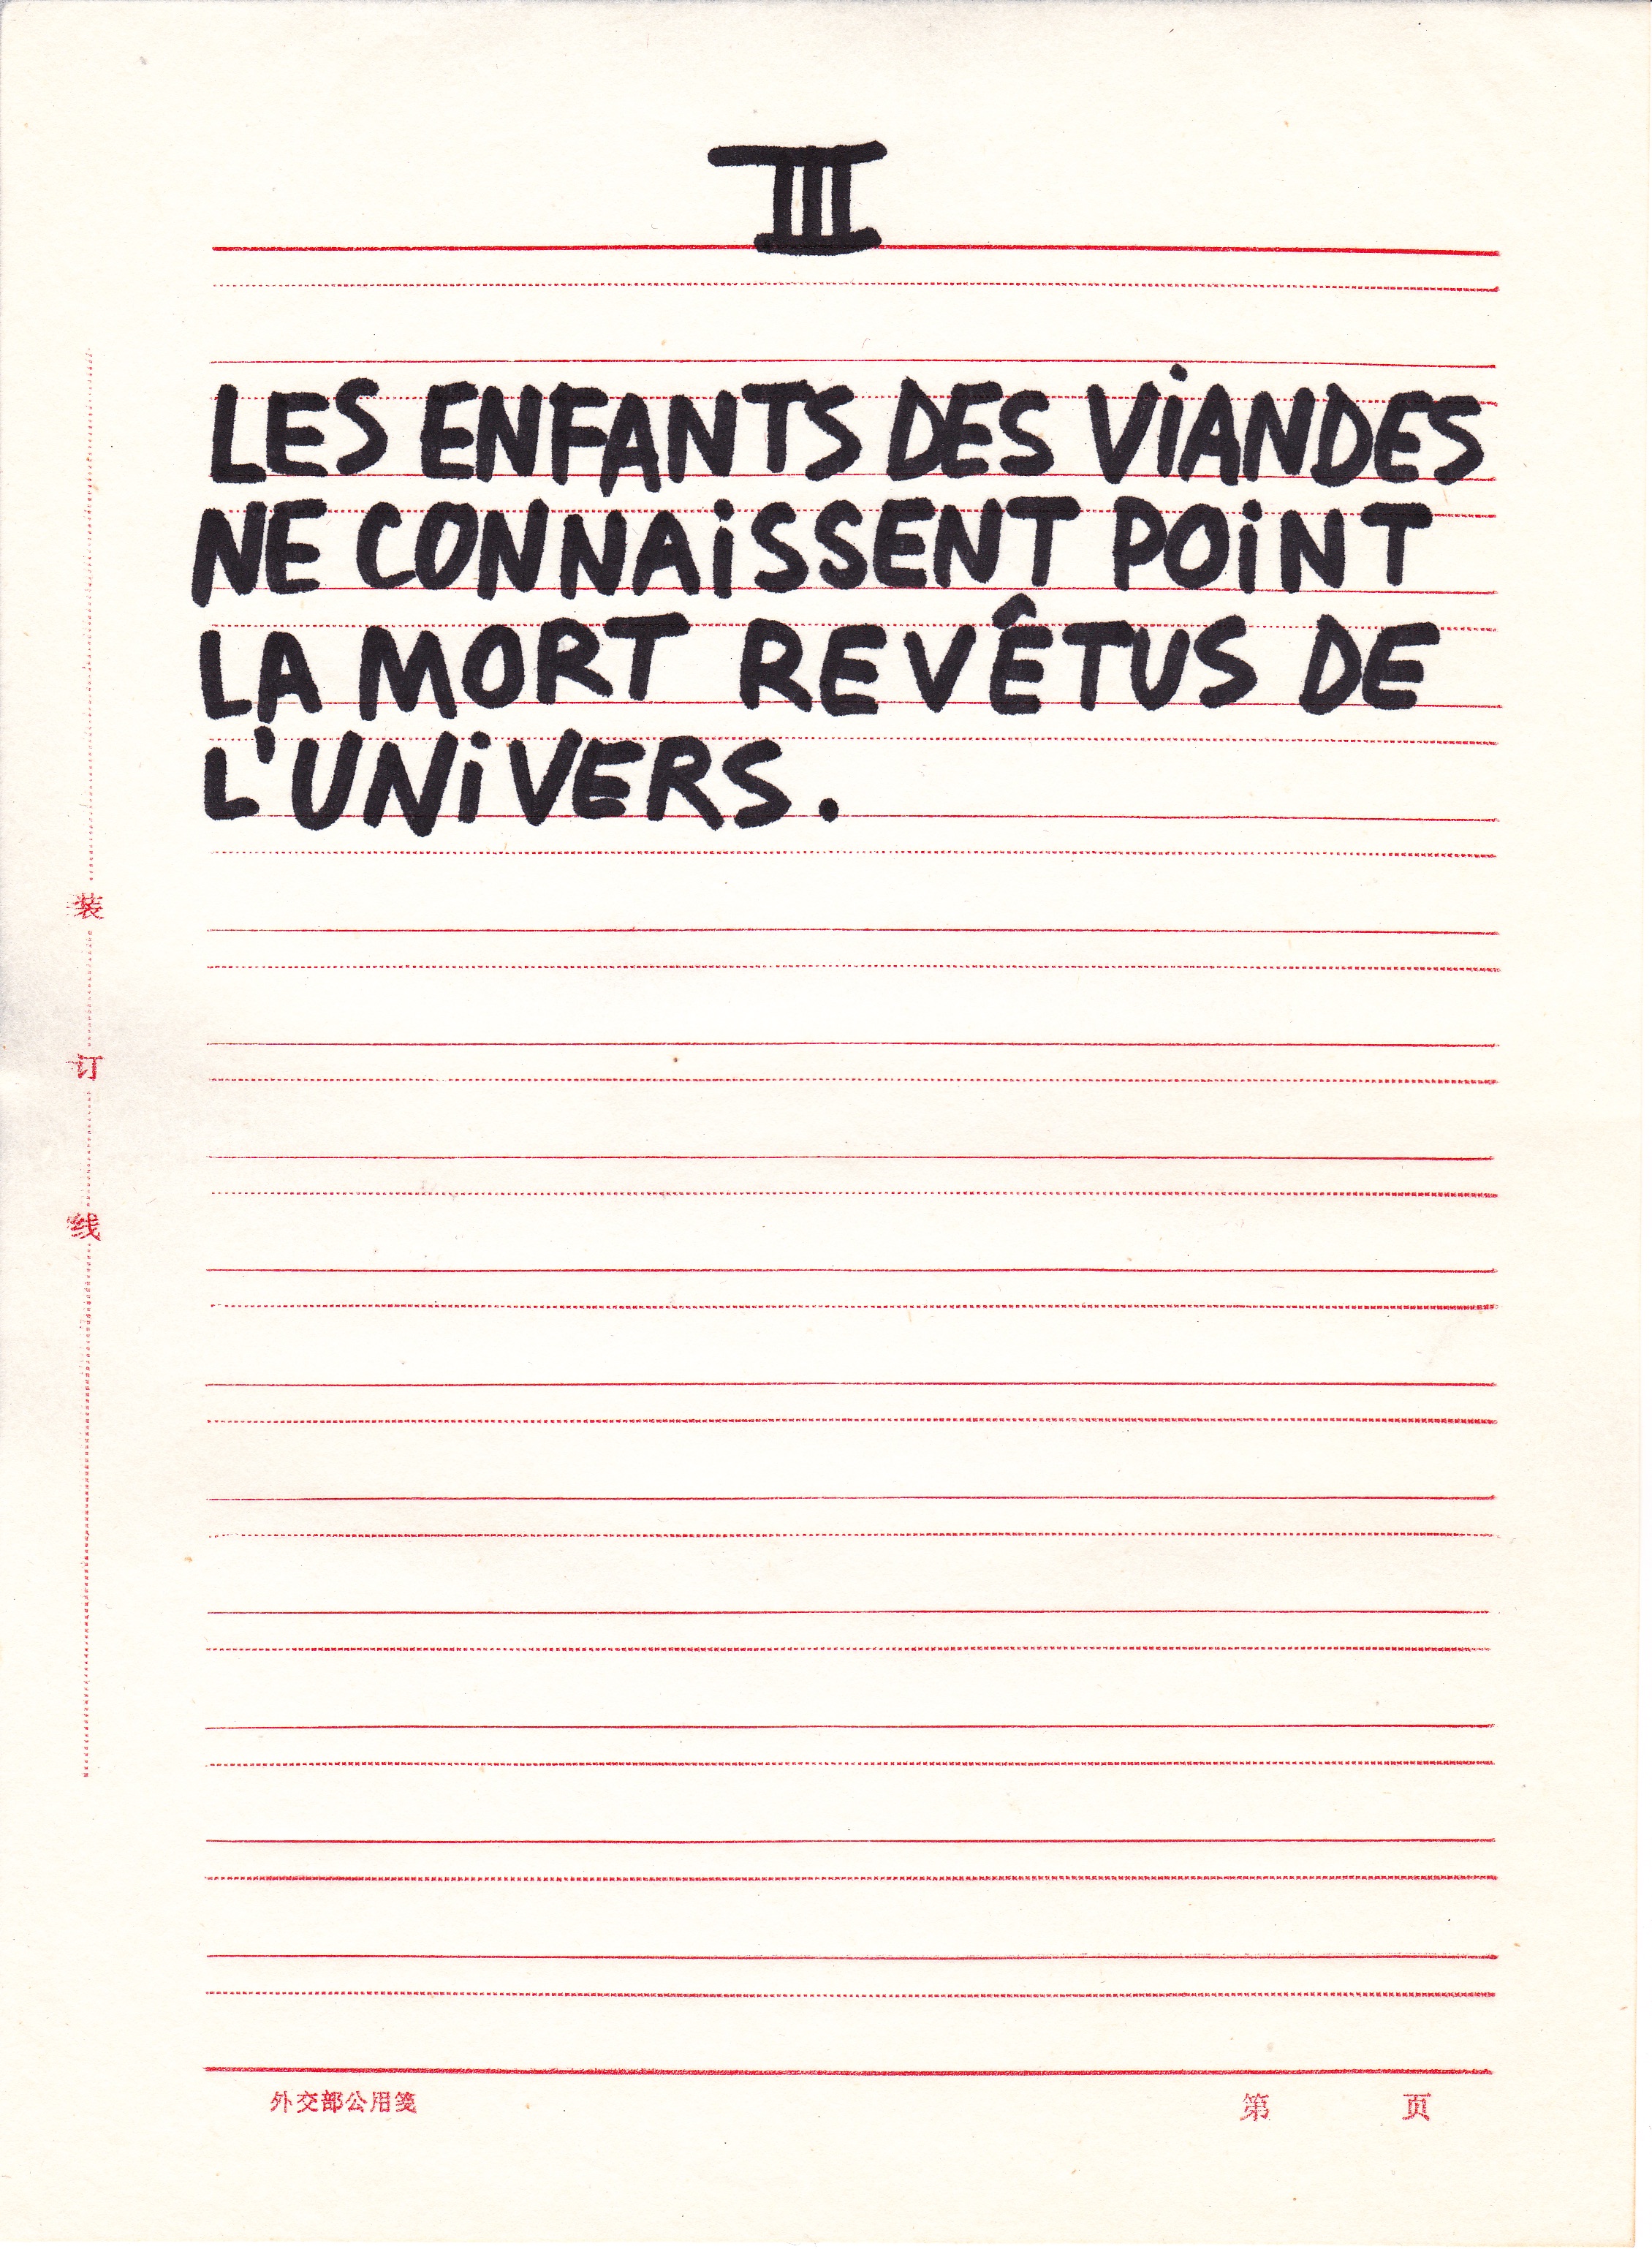 III
LES ENFANTS DES ViANDES
NE CONNAiSSENT POiNT
LA MORT REVÊTUS DE
L'UNiVERS.
装
订
线
外交部公用笺
第 页